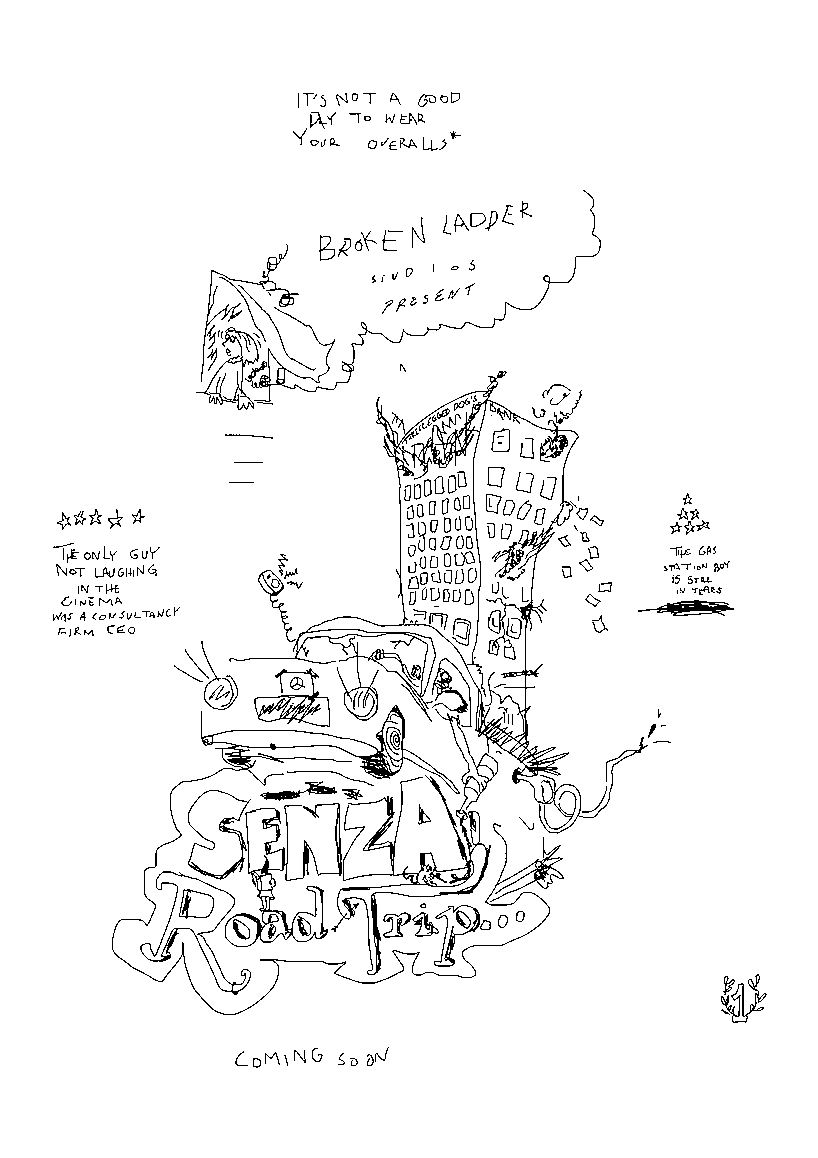 IT'S NOT A GOOD
DAY TO WEAR
YOUR OVERALLS*
BROKEN LADDER
STUDIOS
PRESENT
DOG'S BANK
THE ONLY GUY
NOT LAUGHING
IN THE
CINEMA
WAS A CONSULTANCY
FIRM CEO
THE GAS
STATION BOY
IS STILL
IN TEARS
SENZA
Road Trip...
1
COMING SOON